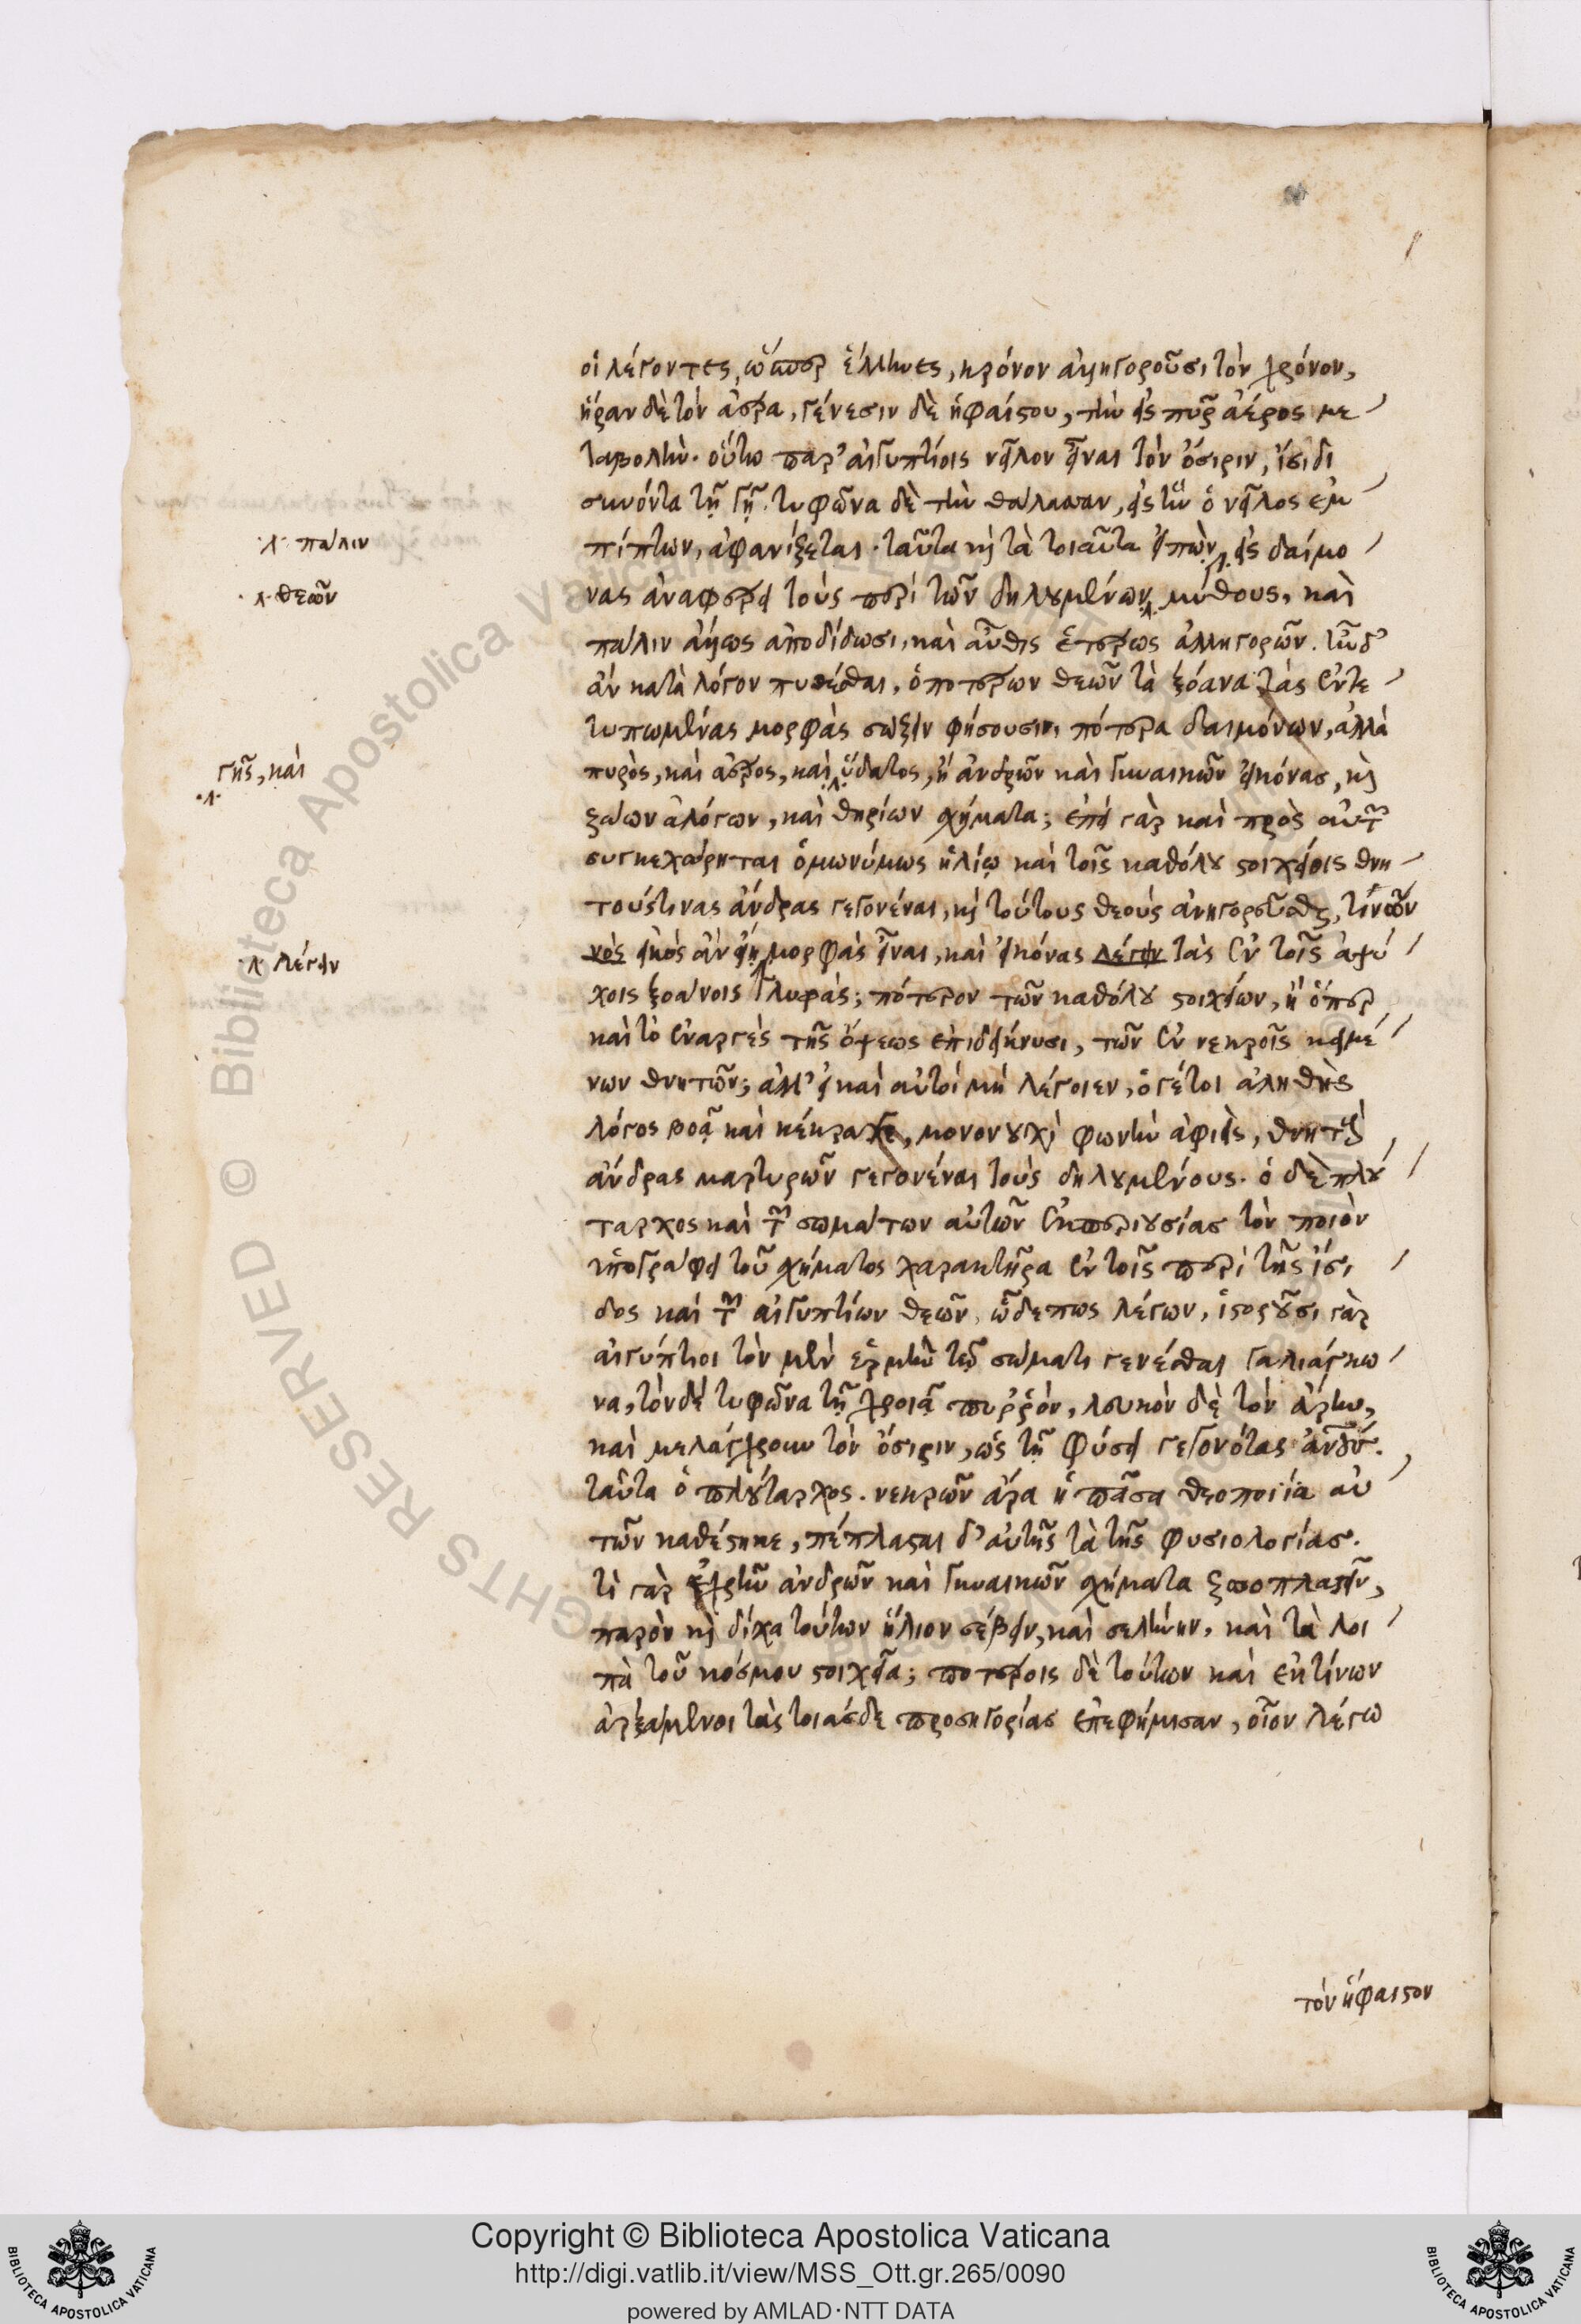 οἱ λέγοντες, ὥσπερ ἕλληνες, κρόνον ἀλληγοροῦσι τὸν χρόνον,
ἥραν δὲ τὸν ἀέρα, γένεσιν δὲ ἡφαίστου, τὴν εἰς πῦρ ἀέρος με
ταβολὴν. οὕτω παρ' αἰγυπτίοις νεῖλον εἶναι τὸν ὄσιριν, ἴσιδι
συνόντα τῇ γῇ. τυφῶνα δὲ τὴν θάλασσαν, εἰς ἣν ὁ νεῖλος ἐμ
πίπτων, ἀφανίζεται. ταῦτα καὶ τὰ τοιαῦτα εἰπὼν, εἰς δαίμο
νας ἀναφέρει τοὺς περὶ τῶν δηλουμένων μύθους, καὶ
πάλιν ἄλλως ἀποδίδωσι, καὶ αὖθις ἑτέρως ἀλληγορῶν.
ἂν κατὰ λόγον πυθέσθαι, ὁποτέρων θεῶν τὰ ξόανα τὰς ἐντε
τυπωμένας μορφὰς σώζειν φήσουσιν, πότερα δαιμόνων, ἀλλὰ
πυρὸς, καὶ ἀέρος, καὶ ὕδατος, ἢ ἀνδρῶν καὶ γυναικῶν εἰκόνας, καὶ
ζώων ἀλόγων, καὶ θηρίων σχήματα; ἐπεὶ γὰρ καὶ πρὸς αὐτῶν
συγκεχώρηται ὁμωνύμως ἡλίῳ καὶ τοῖς καθόλου στοιχείοις θνη
τούς τινας ἄνδρας γεγονέναι, καὶ τούτους θεοὺς ἀνηγορεῦσθαι, τίνων
εἰκὸς ἂν εἴη μορφὰς εἶναι, καὶ εἰκόνας λέγειν τὰς ἐν τοῖς ἀψύ
χοις ξοάνοις γλυφάς; πότερον τῶν καθόλου στοιχείων, ἢ ὅπερ
καὶ τὸ ἐναργὲς τῆς ὄψεως ἐπιδείκνυσι, τῶν ἐν νεκροῖς κειμέ
νων θνητῶν; ἀλλ' εἰ καὶ αὐτοὶ μὴ λέγοιεν, ὅ γέ τοι ἀληθὴς
λόγος βοᾷ καὶ κέκραγε, μονονουχὶ φωνὴν ἀφιεὶς, θνητοὺς
ἄνδρας μαρτυρῶν γεγονέναι τοὺς δηλουμένους. ὁ δὲ πλού
ταρχος καὶ τῶν σωμάτων αὐτῶν ἐκπεριουσίας τὸν ποιὸν
ὑπογράφει τοῦ σχήματος χαρακτῆρα ἐν τοῖς περὶ τῆς ἴσι
δος καὶ τῶν αἰγυπτίων θεῶν, ὧδέ πως λέγων, ἱστοροῦσι γὰρ
αἰγύπτιοι τὸν μὲν ἑρμῆν τῷ σώματι γενέσθαι γαλιάγκω
να, τὸν δὲ τυφῶνα τῇ χροιᾷ πυῤῥόν, λευκὸν δὲ τὸν ἄρην,
καὶ μελάγχρουν τὸν ὄσιριν, ὡς τῇ φύσει γεγονότας ἀνθρώπους.
ταῦτα ὁ πλούταρχος. νεκρῶν ἄρα ἡ πᾶσα θεοποιία αὐ
τῶν καθέστηκε, πέπλασται δ' αὐτῆς τὰ τῆς φυσιολογίας.
τί γὰρ ἐχρῆν ἀνδρῶν καὶ γυναικῶν σχήματα ζωοπλαστεῖν,
παρὸν καὶ δίχα τούτων ἥλιον σέβειν, καὶ σελήνην, καὶ τὰ λοι
πὰ τοῦ κόσμου στοιχεῖα; ποτέροις δὲ τούτων καὶ ἐκ τίνων
ἀρξάμενοι τὰς τοιάσδε προσηγορίας ἐπεφήμισαν, οἷον λέγω
τὸν ἥφαιστον
λ. πάλιν
λ. θεῶν
γῆς, καὶ
λ.
λ. λέγειν
Copyright © Biblioteca Apostolica Vaticana
http://digi.vatlib.it/view/MSS_Ott.gr.265/0090
powered by AMLAD·NTT DATA
BIBLIOTECA APOSTOLICA VATICANA
BIBLIOTECA APOSTOLICA VATICANA